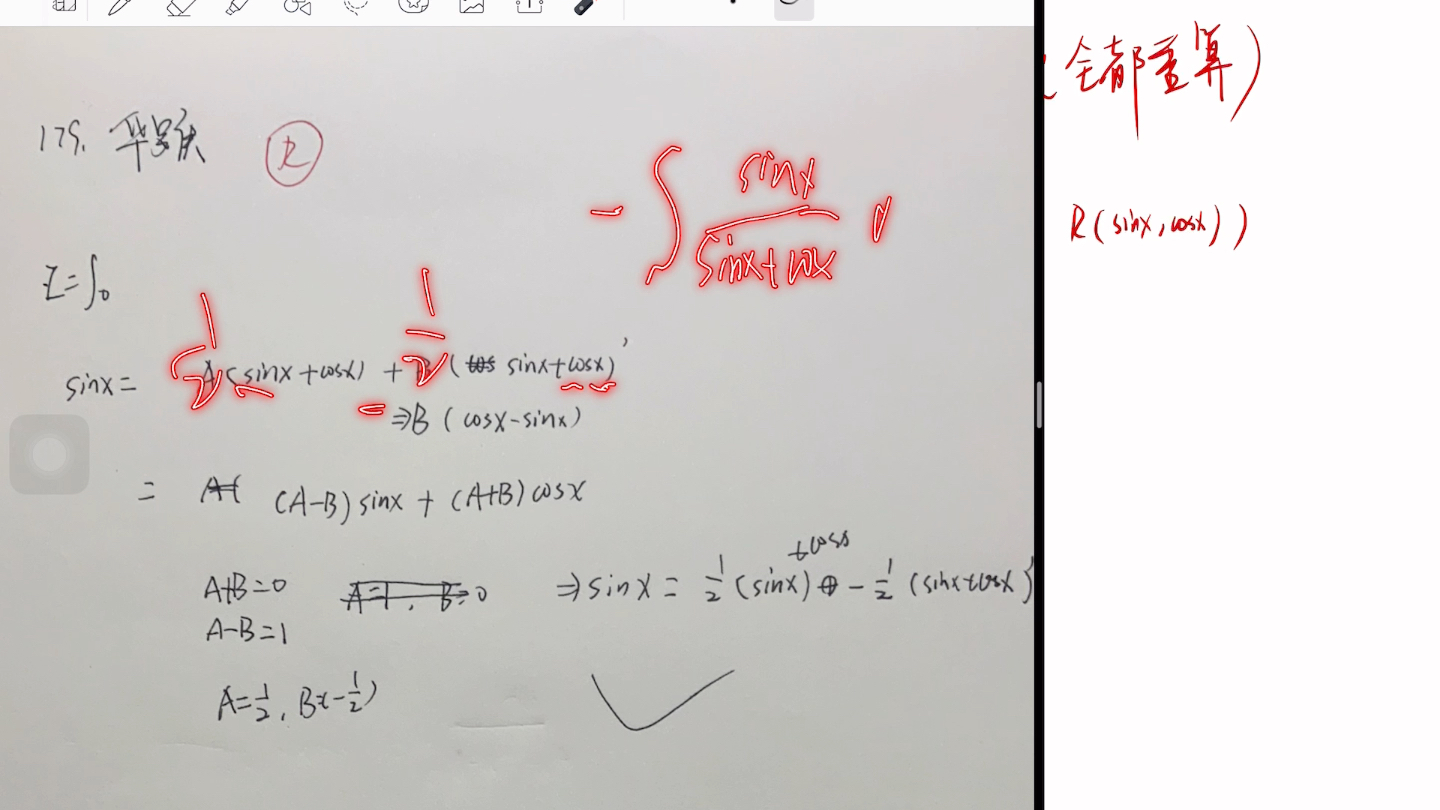 179.
R
- ∫ sinx / (sinx+cosx) d
I = ∫₀
sinx = A(sinx+cosx) + B(cos sinx+cosx)'
1/2
1/2
⇒B(cosx-sinx)
= A( (A-B)sinx + (A+B)cosx
A+B=0
A=1, B=0
⇒sinx = 1/2(sinx)+cosx - 1/2(sinx+cosx)'
A-B=1
A=1/2, B=-1/2)
(全都重算)
R(sinx,cosx))